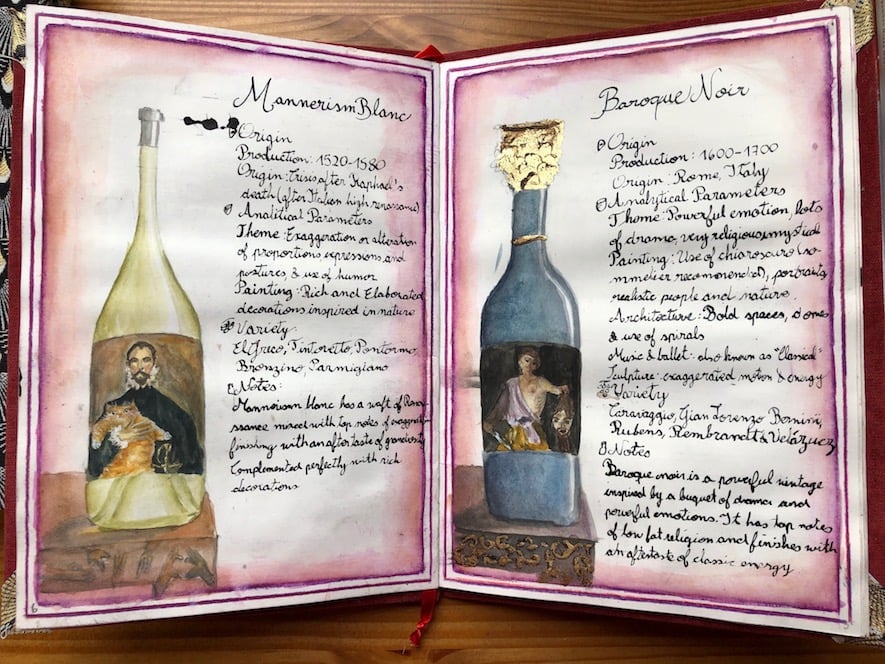 Mannerism Blanc
Origin
Production: 1520-1580
Origin: Crisis after Raphael's
death (after Italian high renassance)
Analitical Parameters
Theme: Exaggeration or alteration
of proportions, expressions, and
postures, & use of humor
Painting: Rich and Elaborated
decorations inspired in nature
Variety:
El Greco, Tintoretto, Pontormo,
Bronzino, Parmigiano
Notes:
Mannerism blanc has a waft of Renai-
ssance mixed with top notes of
finishing with an after taste of grandiosity
Complemented perfectly with rich
decorations
6
Baroque Noir
Origin
Production: 1600-1700
Origin: Rome, Italy
Analytical Parameters
Theme: Powerful emotion, lots
of drama, very religious, mystical
Painting: Use of chiaroscuro (so-
mmelier recomended), portraits,
realistic people and nature.
Architecture: Bold spaces, domes
& use of spirals
Music & ballet: also known as "Classical"
Sculpture: exaggerated motion & energy
Variety
Caravaggio, Gian Lorenzo Bernini,
Rubens, Rembrandt & Velázquez
Notes
Baroque noir is a powerful vintage
inspired by a buquet of drama and
powerful emotions. It has top notes
of low fat religion and finishes with
an aftertaste of classic energy.